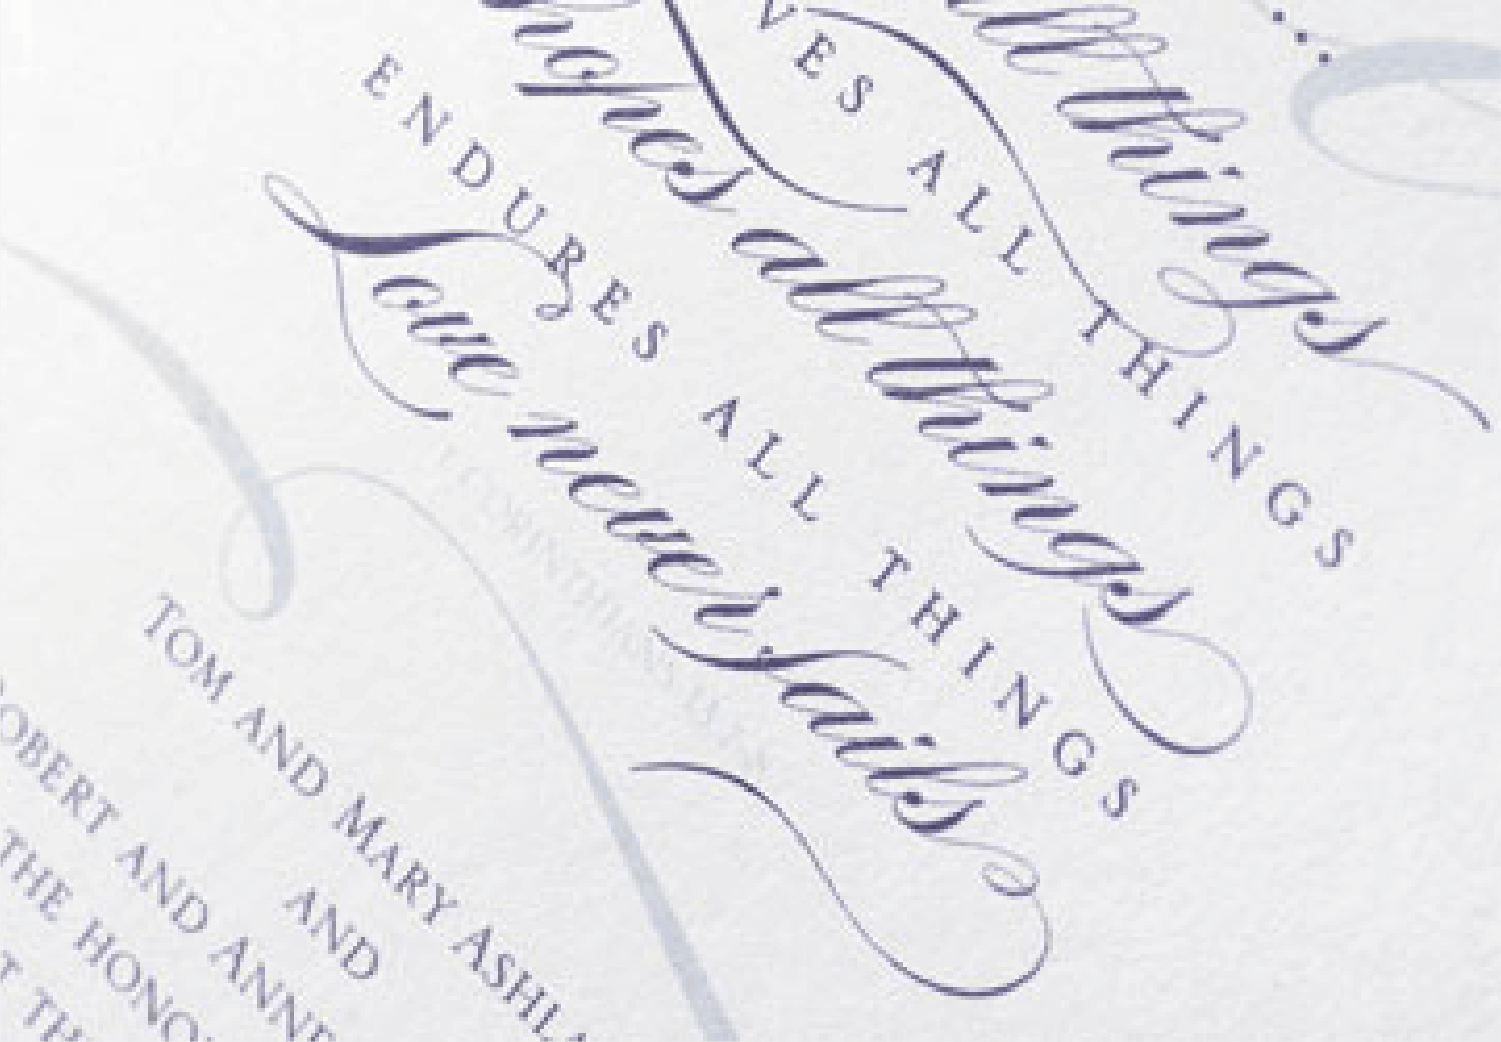 all things
VES ALL THINGS
hopes all things
ENDURES ALL THINGS
Love never fails
TOM AND MARY ASHLA
AND
OBERT AND ANNE
THE HONO
T TH